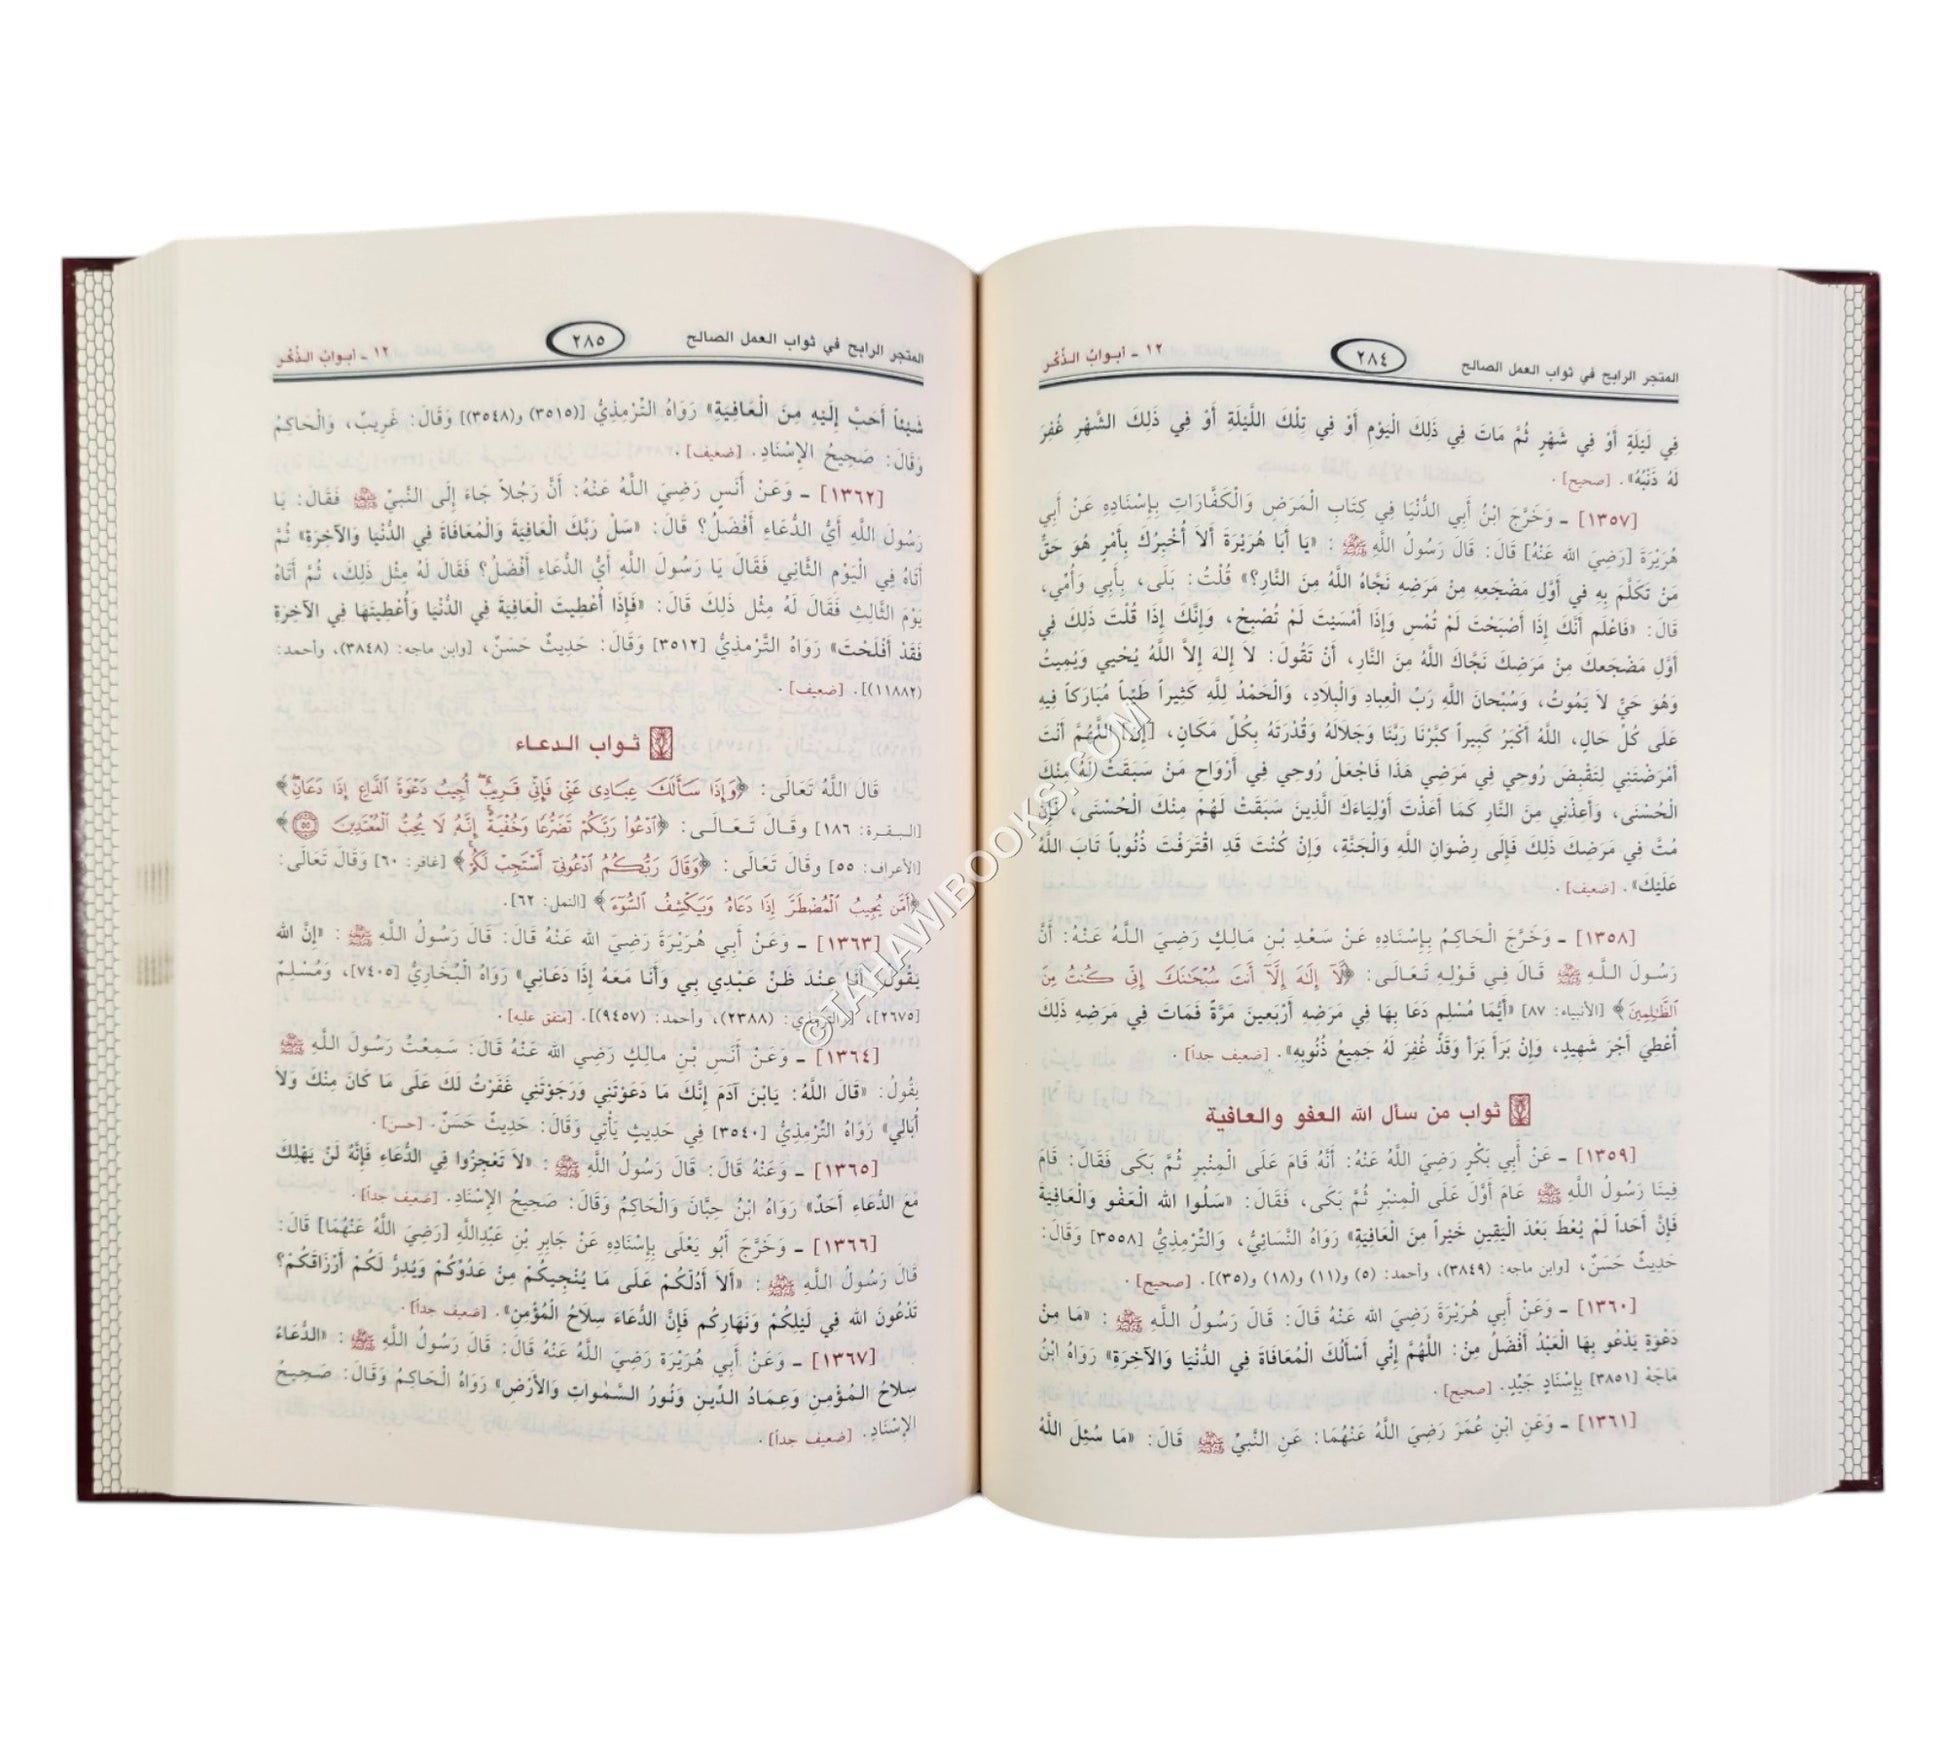 المتجر الرابح في ثواب العمل الصالح ٢٨٤ ١٢ - أبوابُ الذِّكْر
فِي لَيْلَةٍ أَوْ فِي شَهْرٍ ثُمَّ مَاتَ فِي ذَلِكَ الْيَوْمِ أَوْ فِي تِلْكَ اللَّيْلَةِ أَوْ فِي ذَلِكَ الشَّهْرِ غُفِرَ
لَهُ ذَنْبُهُ». [صحيح].
[١٣٥٧] ـ وَخَرَّجَ ابْنُ أَبِي الدُّنْيَا فِي كِتَابِ الْمَرَضِ وَالْكَفَّارَاتِ بِإِسْنَادِهِ عَنْ أَبِي
هُرَيْرَةَ [رَضِيَ الله عَنْهُ] قَالَ: قَالَ رَسُولُ اللَّهِ ﷺ: «يَا أَبَا هُرَيْرَةَ أَلاَ أُخْبِرُكَ بِأَمْرٍ هُوَ حَقٌّ
مَنْ تَكَلَّمَ بِهِ فِي أَوَّلِ مَضْجَعِهِ مِنْ مَرَضِهِ نَجَّاهُ اللَّهُ مِنَ النَّارِ؟» قُلْتُ: بَلَى، بِأَبِي وَأُمِّي،
قَالَ: «فَاعْلَم أَنَّكَ إِذَا أَصْبَحْتَ لَمْ تُمْسِ وَإِذَا أَمْسَيْتَ لَمْ تُصْبِحْ، وَإِنَّكَ إِذَا قُلْتَ ذَلِكَ فِي
أَوَّلِ مَضْجَعِكَ مِنْ مَرَضِكَ نَجَّاكَ اللَّهُ مِنَ النَّارِ، أَنْ تَقُولَ: لاَ إِلهَ إِلاَّ اللَّهُ يُحْيِي وَيُمِيتُ
وَهُوَ حَيٌّ لاَ يَمُوتُ، وَسُبْحَانَ اللَّهِ رَبِّ الْعِبادِ وَالْبِلاَدِ، وَالْحَمْدُ لِلَّهِ كَثِيراً طَيِّباً مُبَارَكاً فِيهِ
عَلَى كُلِّ حَالٍ، اللَّهُ أَكْبَرُ كَبِيراً كَبَّرْنَا رَبَّنَا وَجَلاَلَهُ وَقُدْرَتَهُ بِكُلِّ مَكَانٍ، [إِنْ] اللَّهُمَّ أَنْتَ
أَمْرَضْتَنِي لِتَقْبِضَ رُوحِي فِي مَرَضِي هَذَا فَاجْعَلْ رُوحِي فِي أَرْوَاحِ مَنْ سَبَقَتْ لَهُ مِنْكَ
الْحُسْنَى، وَأَعِذْنِي مِنَ النَّارِ كَمَا أَعَذْتَ أَوْلِيَاءَكَ الَّذِينَ سَبَقَتْ لَهُمْ مِنْكَ الْحُسْنَى، فَإِنْ
مُتَّ فِي مَرَضِكَ ذَلِكَ فَإِلَى رِضْوَانِ اللَّهِ وَالْجَنَّةِ، وَإِنْ كُنْتَ قَدِ اقْتَرَفْتَ ذُنُوباً تَابَ اللَّهُ
عَلَيْكَ». [ضعيف].
[١٣٥٨] ـ وَخَرَّجَ الْحَاكِمُ بِإِسْنَادِهِ عَنْ سَعْدِ بْنِ مَالِكٍ رَضِيَ اللَّهُ عَنْهُ: أَنَّ
رَسُولَ اللَّهِ ﷺ قَالَ فِي قَوْلِهِ تَعَالَى: ﴿لَّآ إِلَٰهَ إِلَّآ أَنتَ سُبْحَٰنَكَ إِنِّى كُنتُ مِنَ
ٱلظَّٰلِمِينَ﴾ [الأنبياء: ٨٧] «أَيُّمَا مُسْلِمٍ دَعَا بِهَا فِي مَرَضِهِ أَرْبَعِينَ مَرَّةً فَمَاتَ فِي مَرَضِهِ ذَلِكَ
أُعْطِيَ أَجْرَ شَهِيدٍ، وَإِنْ بَرَأَ بَرَأَ وَقَدْ غُفِرَ لَهُ جَمِيعُ ذُنُوبِهِ». [ضعيف جداً].
ثواب من سأل الله العفو والعافية
[١٣٥٩] ـ عَنْ أَبِي بَكْرٍ رَضِيَ اللَّهُ عَنْهُ: أَنَّهُ قَامَ عَلَى الْمِنْبَرِ ثُمَّ بَكَى فَقَالَ: قَامَ
فِينَا رَسُولُ اللَّهِ ﷺ عَامَ أَوَّلَ عَلَى الْمِنْبَرِ ثُمَّ بَكَى، فَقَالَ: «سَلُوا الله الْعَفْوَ وَالْعَافِيَةَ
فَإِنَّ أَحَداً لَمْ يُعْطَ بَعْدَ الْيَقِينِ خَيْراً مِنَ الْعَافِيَةِ» رَوَاهُ النَّسَائِيُّ، وَالتِّرْمِذِيُّ [٣٥٥٨] وَقَالَ:
حَدِيثٌ حَسَنٌ، [وابن ماجه: (٣٨٤٩)، وأحمد: (٥) و(١١) و(١٨) و(٣٥)]. [صحيح].
[١٣٦٠] ـ وَعَنْ أَبِي هُرَيْرَةَ رَضِيَ الله عَنْهُ قَالَ: قَالَ رَسُولُ اللَّهِ ﷺ: «مَا مِنْ
دَعْوَةٍ يَدْعُو بِهَا الْعَبْدُ أَفْضَلُ مِنْ: اللَّهُمَّ إِنِّي أَسْأَلُكَ الْمُعَافَاةَ فِي الدُّنْيَا وَالآخِرَةِ» رَوَاهُ ابْنُ
مَاجَهْ [٣٨٥١] بِإِسْنَادٍ جَيِّدٍ. [صحيح].
[١٣٦١] ـ وَعَنِ ابْنِ عُمَرَ رَضِيَ اللَّهُ عَنْهُمَا: عَنِ النَّبِيِّ ﷺ قَالَ: «مَا سُئِلَ اللَّهُ
المتجر الرابح في ثواب العمل الصالح ٢٨٥ ١٢ - أبوابُ الذِّكْر
شَيْئاً أَحَبَّ إِلَيْهِ مِنَ الْعَافِيَةِ» رَوَاهُ التِّرْمِذِيُّ [(٣٥١٥) و(٣٥٤٨)] وَقَالَ: غَرِيبٌ، وَالْحَاكِمُ
وَقَالَ: صَحِيحُ الإِسْنَادِ. [ضعيف].
[١٣٦٢] ـ وَعَنْ أَنَسٍ رَضِيَ اللَّهُ عَنْهُ: أَنَّ رَجُلاً جَاءَ إِلَى النَّبِيِّ ﷺ فَقَالَ: يَا
رَسُولَ اللَّهِ أَيُّ الدُّعَاءِ أَفْضَلُ؟ قَالَ: «سَلْ رَبَّكَ الْعَافِيَةَ وَالْمُعَافَاةَ فِي الدُّنْيَا وَالآخِرَةِ» ثُمَّ
أَتَاهُ فِي الْيَوْمِ الثَّانِي فَقَالَ يَا رَسُولَ اللَّهِ أَيُّ الدُّعَاءِ أَفْضَلُ؟ فَقَالَ لَهُ مِثْلَ ذَلِكَ، ثُمَّ أَتَاهُ
يَوْمَ الثَّالِثِ فَقَالَ لَهُ مِثْلَ ذَلِكَ قَالَ: «فَإِذَا أُعْطِيتَ الْعَافِيَةَ فِي الدُّنْيَا وَأُعْطِيتَهَا فِي الآخِرَةِ
فَقَدْ أَفْلَحْتَ» رَوَاهُ التَّرْمِذِيُّ [٣٥١٢] وَقَالَ: حَدِيثٌ حَسَنٌ، [وابن ماجه: (٣٨٤٨)، وأحمد:
(١١٨٨٢)]. [ضعيف].
ثواب الدعاء
قَالَ اللَّهُ تَعَالَى: ﴿وَإِذَا سَأَلَكَ عِبَادِى عَنِّى فَإِنِّى قَرِيبٌ أُجِيبُ دَعْوَةَ ٱلدَّاعِ إِذَا دَعَانِ﴾
[البقرة: ١٨٦] وقَالَ تَعَالَى: ﴿ٱدْعُوا۟ رَبَّكُمْ تَضَرُّعًا وَخُفْيَةً إِنَّهُۥ لَا يُحِبُّ ٱلْمُعْتَدِينَ ٥٥﴾
[الأعراف: ٥٥] وقَالَ تَعَالَى: ﴿وَقَالَ رَبُّكُمُ ٱدْعُونِىٓ أَسْتَجِبْ لَكُمْ﴾ [غافر: ٦٠] وَقَالَ تَعَالَى:
﴿أَمَّن يُجِيبُ ٱلْمُضْطَرَّ إِذَا دَعَاهُ وَيَكْشِفُ ٱلسُّوٓءَ﴾ [النمل: ٦٢].
[١٣٦٣] ـ وَعَنْ أَبِي هُرَيْرَةَ رَضِيَ الله عَنْهُ قَالَ: قَالَ رَسُولُ اللَّهِ ﷺ: «إِنَّ الله
يَقُولُ: أَنَا عِنْدَ ظَنِّ عَبْدِي بِي وَأَنَا مَعَهُ إِذَا دَعَانِي» رَوَاهُ الْبُخَارِيُّ [٧٤٠٥]، وَمُسْلِمٌ
[٢٦٧٥]، [والترمذي: (٢٣٨٨)، وأحمد: (٩٤٥٧)]. [متفق عليه].
[١٣٦٤] ـ وَعَنْ أَنَسِ بْنِ مالِكٍ رَضِيَ الله عَنْهُ قَالَ: سَمِعْتُ رَسُولَ اللَّهِ ﷺ
يَقُولُ: «قَالَ اللَّهُ: يَابْنَ آدَمَ إِنَّكَ مَا دَعَوْتَنِي وَرَجَوْتَنِي غَفَرْتُ لَكَ عَلَى مَا كَانَ مِنْكَ وَلاَ
أُبَالِي» رَوَاهُ التِّرْمِذِيُّ [٣٥٤٠] فِي حَدِيثٍ يَأْتِي وَقَالَ: حَدِيثٌ حَسَنٌ. [حسن].
[١٣٦٥] ـ وَعَنْهُ قَالَ: قَالَ رَسُولُ اللَّهِ ﷺ: «لاَ تَعْجِزُوا فِي الدُّعَاءِ فَإِنَّهُ لَنْ يَهْلِكَ
مَعَ الدُّعَاءِ أَحَدٌ» رَوَاهُ ابْنُ حِبَّانَ وَالْحَاكِمُ وَقَالَ: صَحِيحُ الإِسْنَادِ. [ضعيف جداً].
[١٣٦٦] ـ وَخَرَّجَ أَبُو يَعْلَى بِإِسْنَادِهِ عَنْ جَابِرِ بْنِ عَبْدِاللَّهِ [رَضِيَ اللَّهُ عَنْهُمَا] قَالَ:
قَالَ رَسُولُ اللَّهِ ﷺ: «أَلاَ أَدُلُّكُمْ عَلَى مَا يُنْجِيكُمْ مِنْ عَدُوِّكُمْ وَيُدِرُّ لَكُمْ أَرْزَاقَكُمْ؟
تَدْعُونَ الله فِي لَيْلِكُمْ وَنَهَارِكُم فَإِنَّ الدُّعَاءَ سِلاَحُ الْمُؤْمِنِ». [ضعيف جداً].
[١٣٦٧] ـ وَعَنْ أَبِي هُرَيْرَةَ رَضِيَ اللَّهُ عَنْهُ قَالَ: قَالَ رَسُولُ اللَّهِ ﷺ: «الدُّعَاءُ
سِلاحُ الْمُؤْمِنِ وَعِمَادُ الدِّينِ وَنُورُ السَّمٰواتِ وَالأَرْضِ» رَوَاهُ الْحَاكِمُ وَقَالَ: صَحِيحُ
الإِسْنَادِ. [ضعيف جداً].
©TAHAWIBOOKS.COM